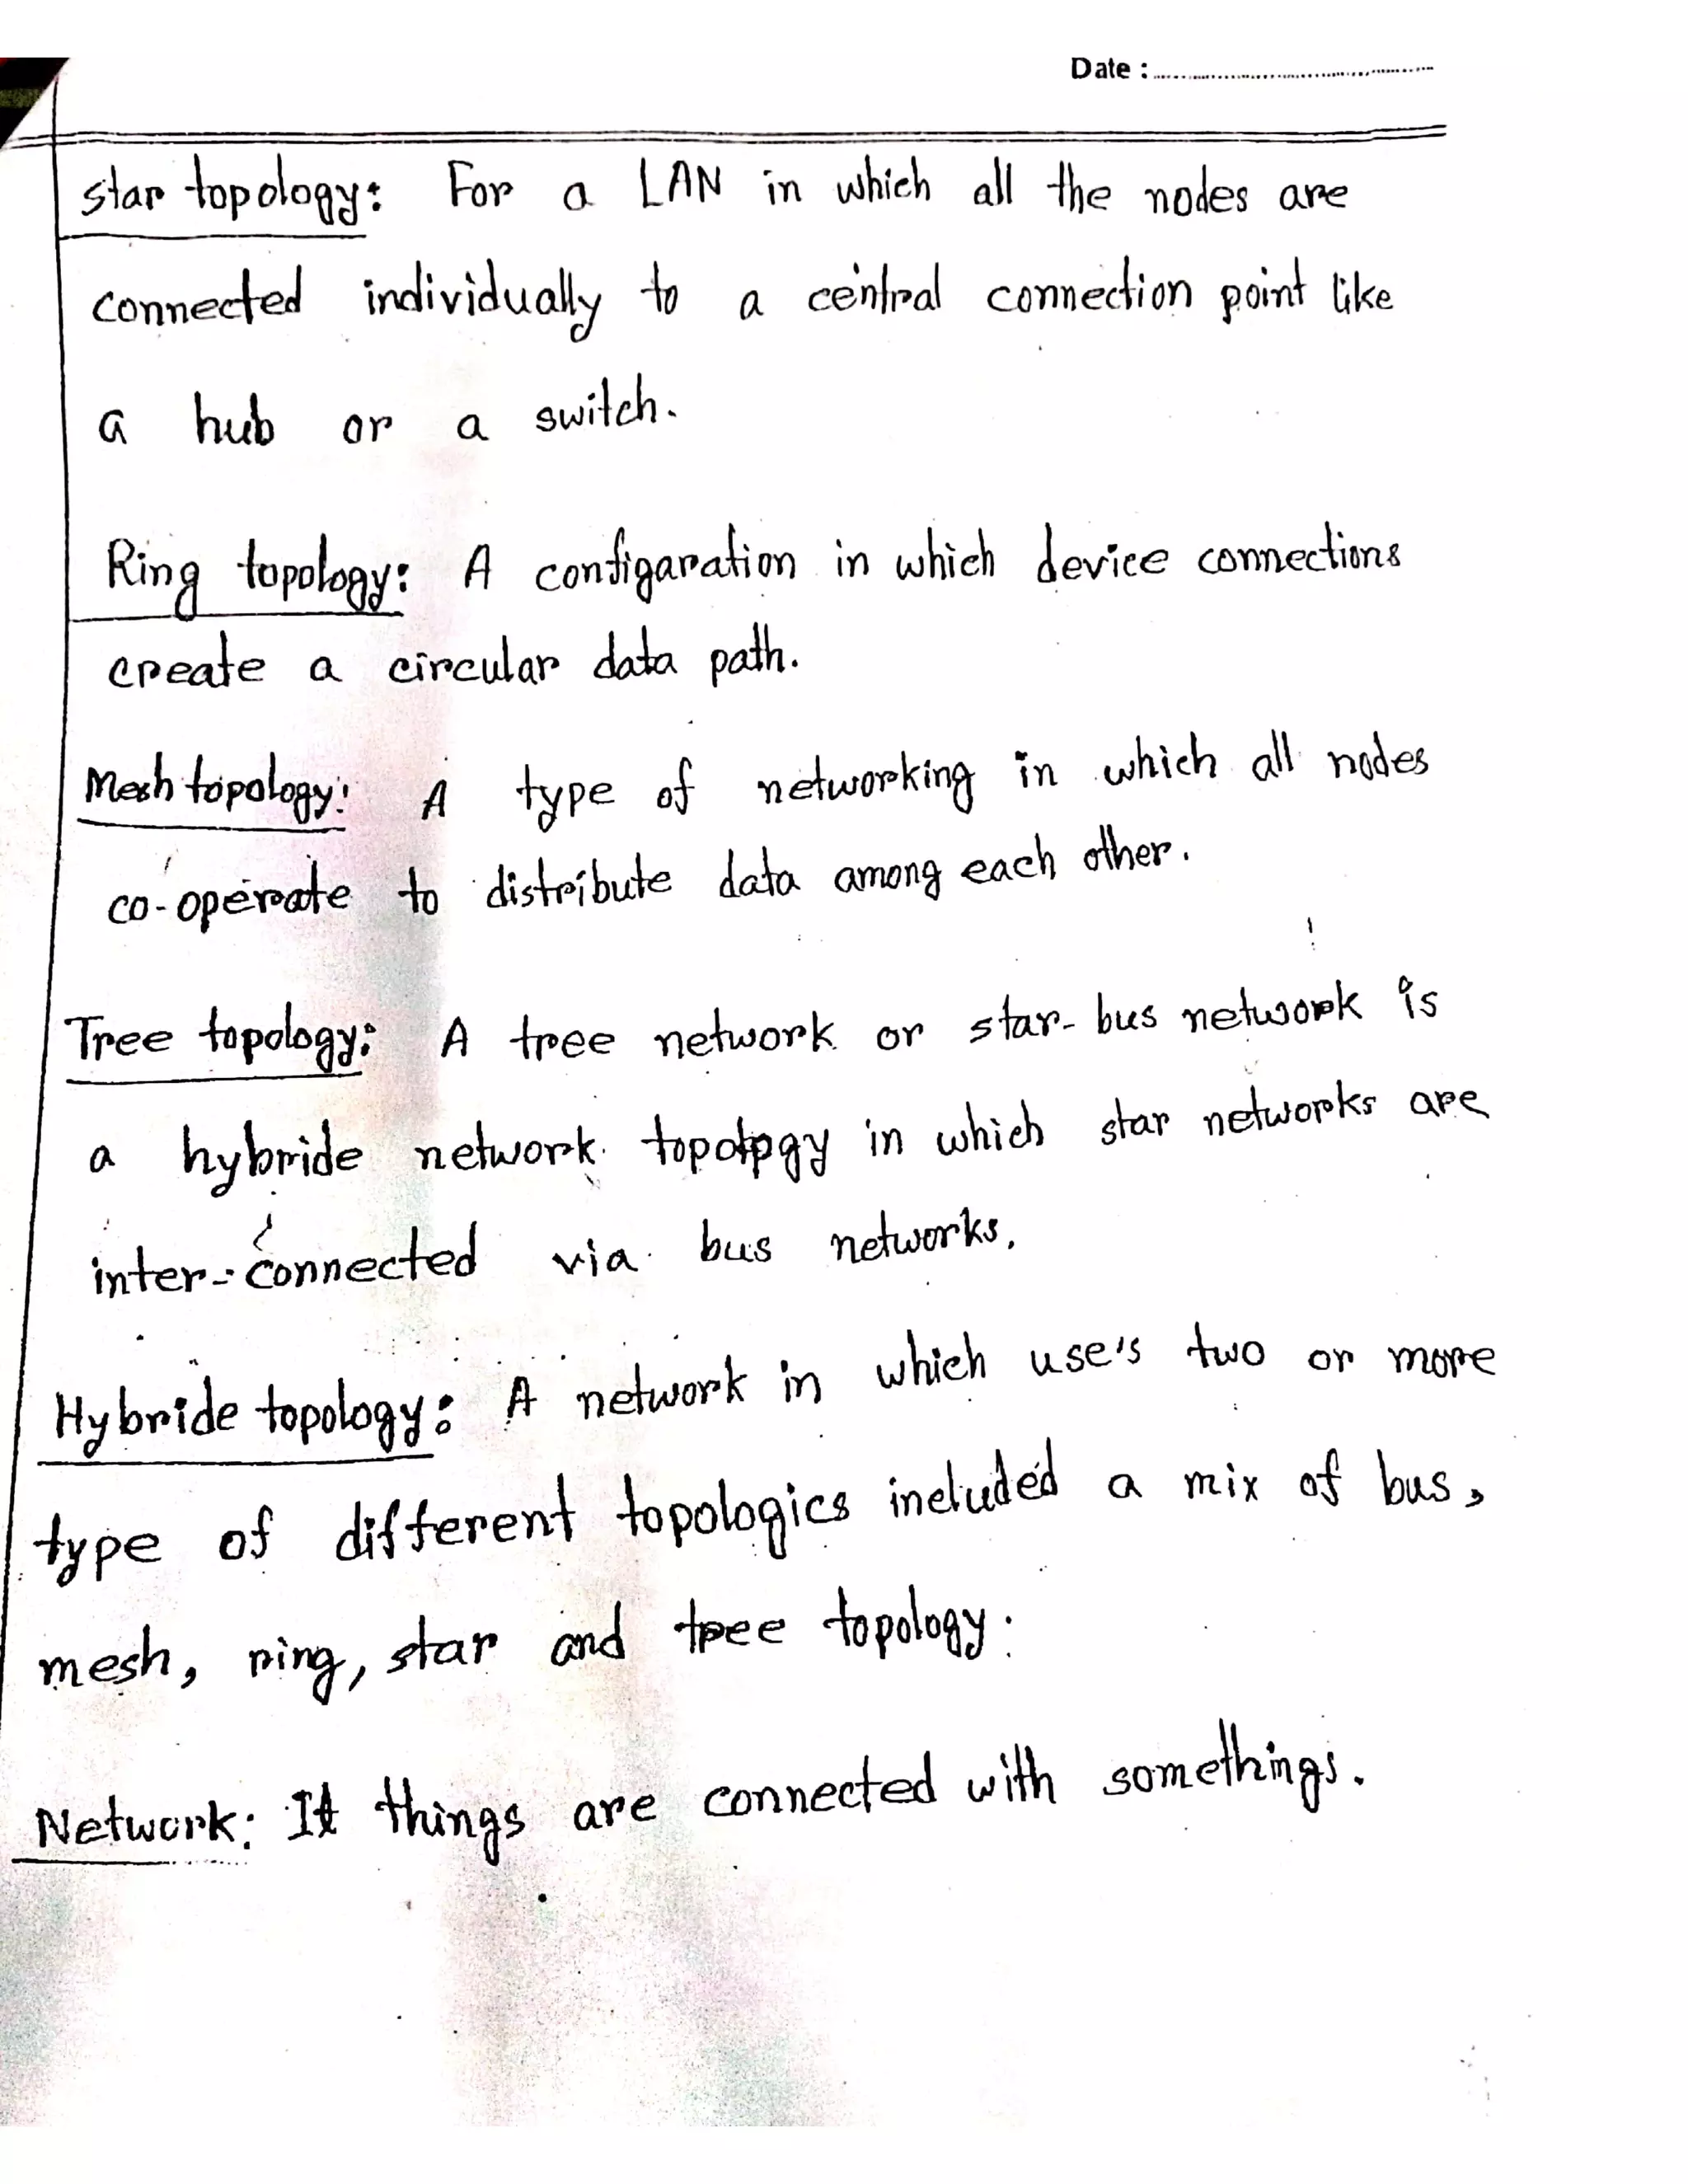 Date :
star topology: For a LAN in which all the nodes are
connected individually to a central connection point like
a hub or a switch.
Ring topology: A configaration in which device connections
create a circular data path.
Mesh topology: A type of networking in which all nodes
co-operate to distribute data among each other.
Tree topology: A tree network or star-bus network is
a hybride network topology in which star networks are
inter-connected via bus networks.
Hybride topology: A network in which use's two or more
type of different topologies included a mix of bus,
mesh, ring, star and tree topology.
Network: If things are connected with somethings.